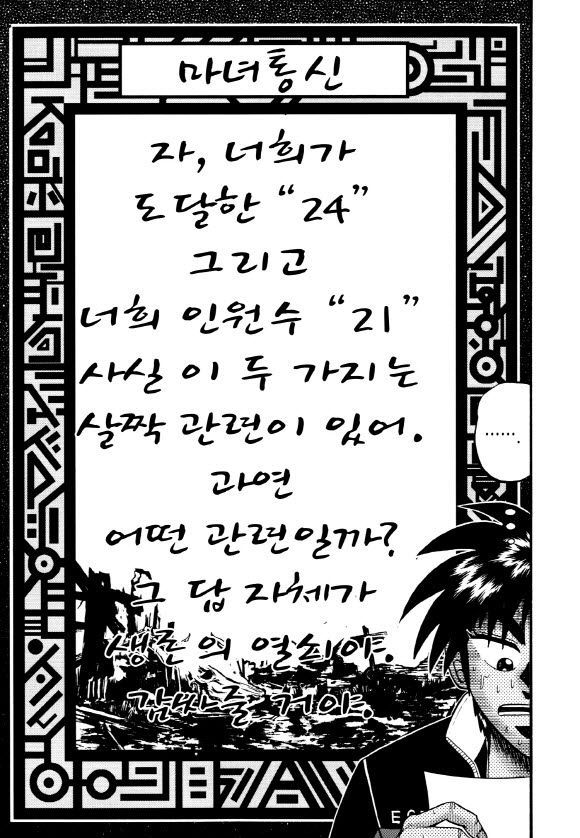 마녀통신
자, 너희가
도달한 “24”
그리고
너희 인원수 “21”
사실 이 두 가지는
살짝 관련이 있어.
과연
어떤 관련일까?
그 답 자체가
생존의 열쇠야.
감싸줄 거야.
.......